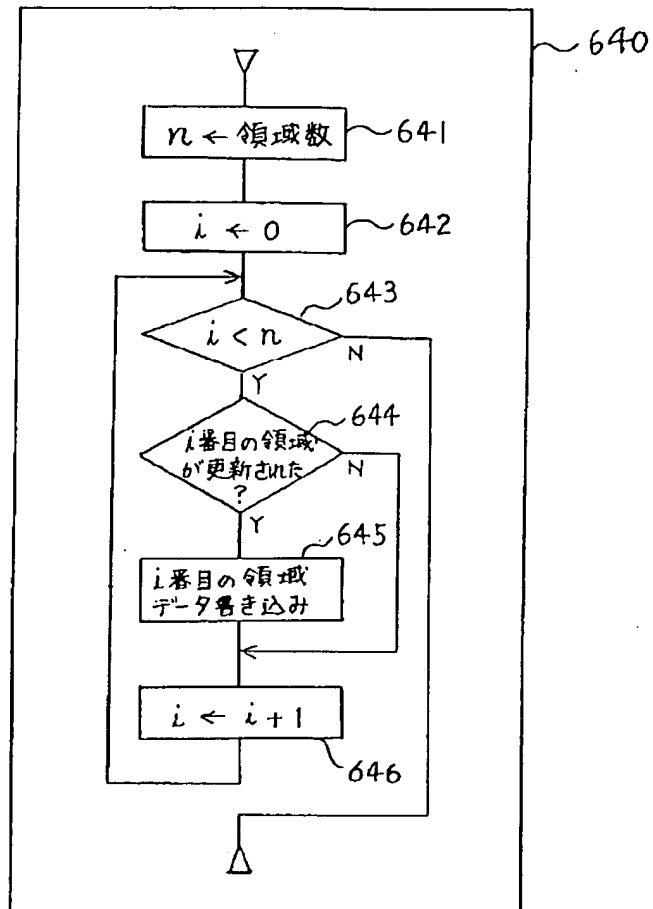 640
n ← 領域数
641
i ← 0
642
643
i < n
N
Y
644
i番目の領域
が更新された
?
N
Y
645
i番目の領域
データ書き込み
i ← i + 1
646